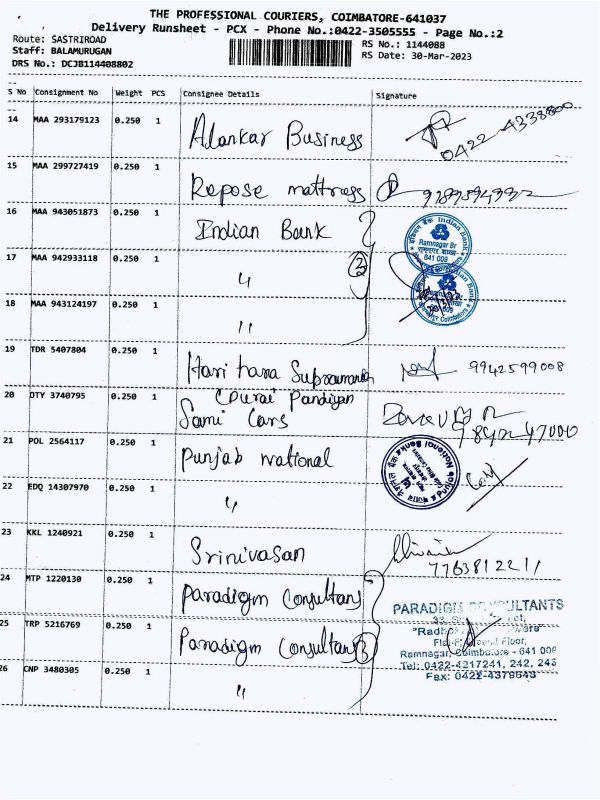 THE PROFESSIONAL COURIERS, COIMBATORE-641037
Delivery Runsheet - PCX - Phone No.:0422-3505555 - Page No.:2
Route: SASTRIROAD
Staff: BALAMURUGAN
DRS No.: DCJB114408802
RS No.: 1144088
RS Date: 30-Mar-2023
S No Consignment No Weight PCS Consignee Details Signature
14 MAA 293179123 0.250 1 Alankar Business 0422 4338800
15 MAA 299727419 0.250 1 Repose mattress
16 MAA 943051873 0.250 1 Indian Bank
Indian Bank
Ramnagar Br
641 009
17 MAA 942933118 0.250 1 " 3
18 MAA 943124197 0.250 1 "
19 TDR 5407804 0.250 1 Hari hara Subramanian 9942599008
20 DTY 3740795 0.250 1 (Durai Pandiyan
Sami Cars 9842247000
21 POL 2564117 0.250 1 Punjab national
Punjab National Bank
22 EDQ 14307970 0.250 1 "
23 KKL 1240921 0.250 1 Srinivasan 7763812211
24 MTP 1220130 0.250 1 Paradigm Consultans
PARADIGM CONSULTANTS
25 TRP 5216769 0.250 1 Paradigm Consultans 3
Floor,
Ramnagar, Coimbatore - 641 009
Tel: 0422-4217241, 242, 243
Fax: 0422-4379643
26 CNP 3480305 0.250 1 "